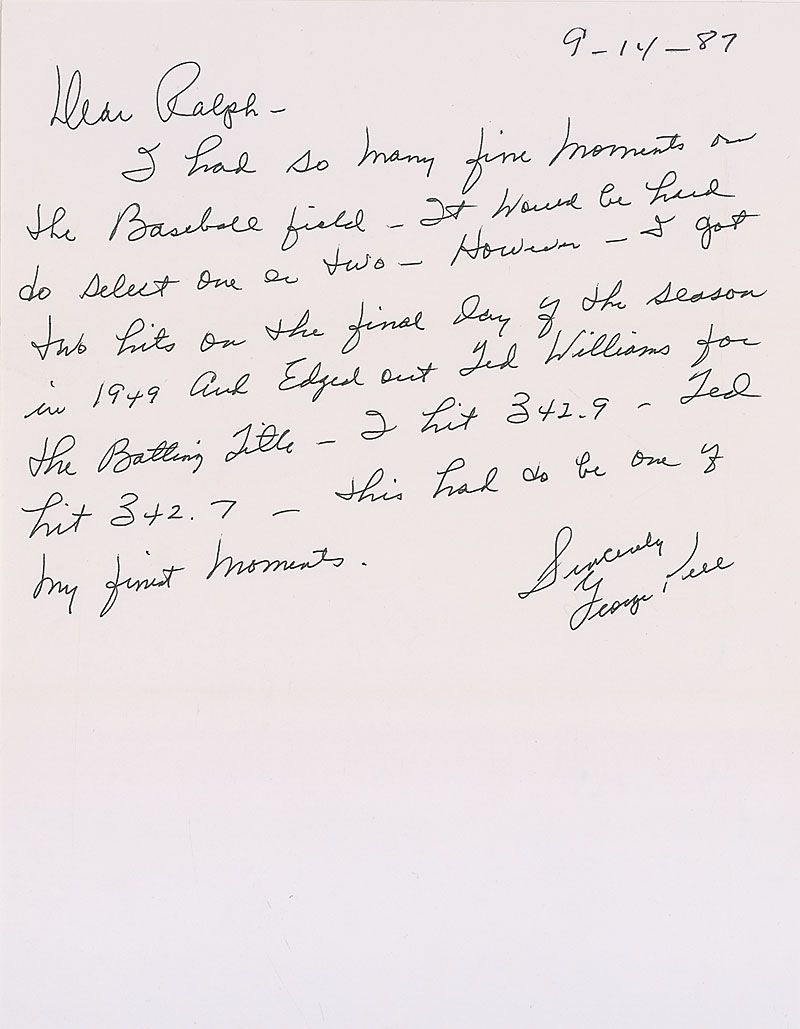 9-14-87
Dear Ralph-
I had so many fine moments on
the Baseball field - It would be hard
to select one or two - However - I got
two hits on the final day of the season
in 1949 and Edged out Ted Williams for
the Batting Title - I hit 342.9 - Ted
hit 342.7 - this had to be one of
my finest moments.
Sincerely
George Kell